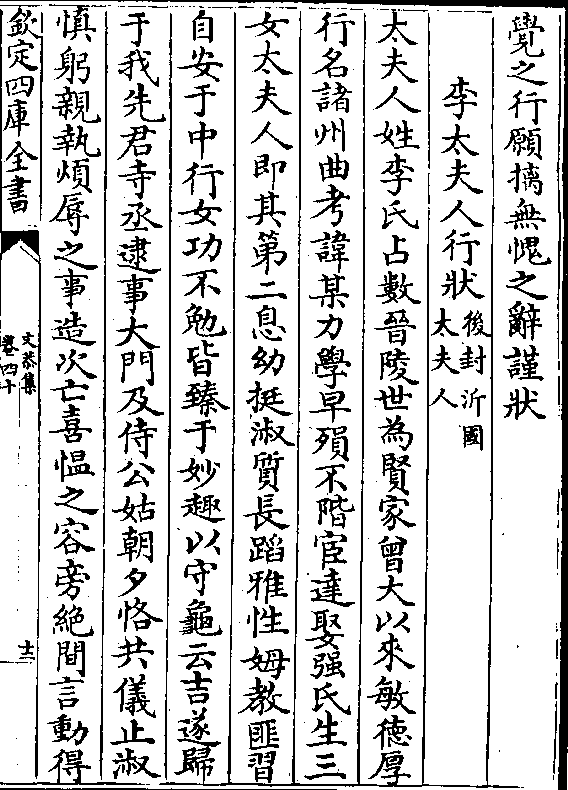 覺之行願摛無愧之辭謹狀
李太夫人行狀後封沂國太夫人
太夫人姓李氏占數晉陵世為賢家曾大以來敏德厚
行名諸州曲考諱某力學早殞不階宦達娶强氏生三
女太夫人即其第二息幼挺淑質長蹈雅性姆教匪習
自安于中行女功不勉皆臻于妙趣以守龜云吉遂歸
于我先君寺丞逮事大門及侍公姑朝夕恪共儀止淑
慎躬親執煩辱之事造次亡喜愠之容旁絶間言動得
欽定四庫全書
文恭集
卷四十
十二